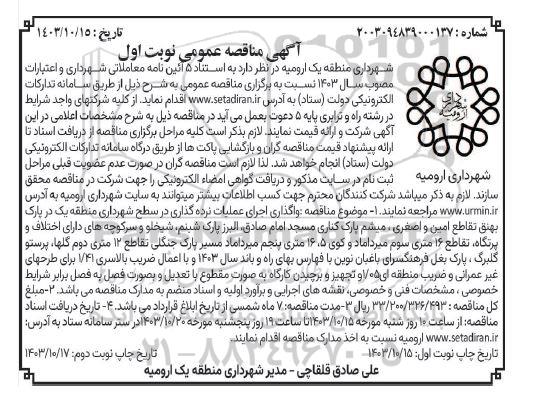 شماره : ۲۰۰۳۰۹۴۸۳۹۰۰۰۱۳۷
تاریخ : ۱۴۰۳/۱۰/۱۵
آگهی مناقصه عمومی نوبت اول
شهرداری منطقه یک ارومیه در نظر دارد به استناد ۵ آئین نامه معاملاتی شهرداری و اعتبارات
مصوب سال ۱۴۰۳ نسبت به برگزاری مناقصه عمومی به شرح ذیل از طریق سامانه تدارکات
الکترونیکی دولت (ستاد) به آدرس www.setadiran.ir اقدام نماید. از کلیه شرکتهای واجد شرایط
در رشته راه و ترابری پایه ۵ دعوت بعمل می آید در مناقصه ذیل به شرح مشخصات اعلامی در این
آگهی شرکت و ارائه قیمت نمایند. لازم بذکر است کلیه مراحل برگزاری مناقصه از دریافت اسناد تا
ارائه پیشنهاد قیمت مناقصه گران و بازگشایی پاکت ها از طریق درگاه سامانه تدارکات الکترونیکی
دولت (ستاد) انجام خواهد شد. لذا لازم است مناقصه گران در صورت عدم عضویت قبلی مراحل
ثبت نام در سایت مذکور و دریافت گواهی امضاء الکترونیکی را جهت شرکت در مناقصه محقق
شهرداری ارومیه
سازند. لازم به ذکر میباشد شرکت کنندگان محترم جهت کسب اطلاعات بیشتر میتوانند به سایت شهرداری ارومیه به آدرس
www.urmin.ir مراجعه نمایند. ۱- موضوع مناقصه :واگذاری اجرای عملیات نرده گذاری در سطح شهرداری منطقه یک در پارک
بهنق تقاطع امین و اصغری ، میشم پارک کناری مسجد امام صادق، البرز پارک شبنم، شیخلو و سرکوچه های دارای اختلاف و
پرتگاه، تقاطع ۱۶ متری سوم میرداماد و کوی ۱۶،۵ متری پنجم میرداماد مسیر پارک جنگلی تقاطع ۱۲ متری دوم گلها، پرستو
گلبرگ ، پارک بغل فرهنگسرای باغبان نوین با فهارس بهای راه و باند سال ۱۴۰۳ و با اعمال ضریب بالاسری ۱/۴۱ برای طرحهای
غیر عمرانی و ضریب منطقه ای۱/۰۵ و تجهیز و برچیدن کارگاه به صورت مقطوع با تعدیل و بصورت فصل به فصل برابر شرایط
خصوصی ، مشخصات فنی و خصوصی، نقشه های اجرایی و برآورد اولیه و اسناد منضم به مدارک مناقصه می باشد. ۲-مبلغ
کل مناقصه : ۳۳/۲۰۰/۳۲۶/۴۹۳ ریال ۳-مدت مناقصه: ۷ ماه شمسی از تاریخ ابلاغ قرارداد می باشد. ۴- تاریخ دریافت اسناد
مناقصه: از ساعت ۱۰ روز شنبه مورخه ۱۴۰۳/۱۰/۱۵تا ساعت ۱۹ روز پنجشنبه مورخه ۱۴۰۳/۱۰/۲۰در ستر سامانه ستاد به آدرس:
www.setadiran.ir ارومیه نسبت به اخذ مدارک مناقصه اقدام نمایند.
تاریخ چاپ نوبت اول: ۱۴۰۳/۱۰/۱۵
تاریخ چاپ نوبت دوم: ۱۴۰۳/۱۰/۱۷
علی صادق قلقاچی - مدیر شهرداری منطقه یک ارومیه